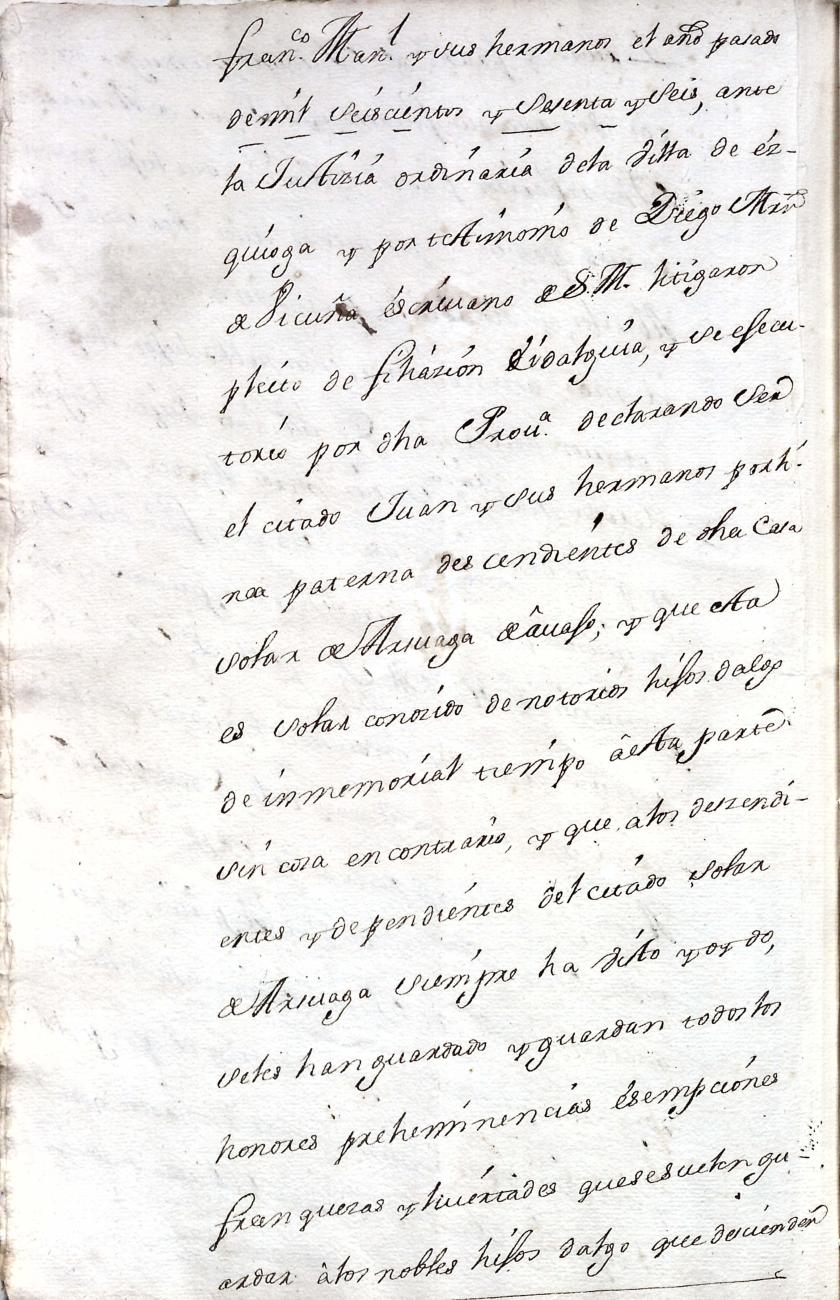 fran.co Man.l y sus hermanos el año pasado
de mil seiscientos y sesenta y seis, ante
la Justizia ordinaria dela Villa de éz-
quioga y por testimonio de Diego Mrn
de Vicuña éscrivano de S M. litigaron
pleito de filiazión éidalguia, y se esecu-
torió por dha Prou.a declarando ser
el citado Juan y sus hermanos por lí-
nea paterna descendientes de dha Casa
solar de Arsuaga de âvaso; y que esta
es solar conozido de notorios hijos dalgo
de inmemorial tiempo âesta parte
sin cosa en contrario, y que a los deszendi-
entes y dependientes del citado solar
de Arsuaga siempre ha visto y oydo,
seles han guardado y guardan todos los
honores preheminencias ésempciones
franquezas y livertades que se suelen gu-
ardar âlos nobles hijos dalgo que descienden